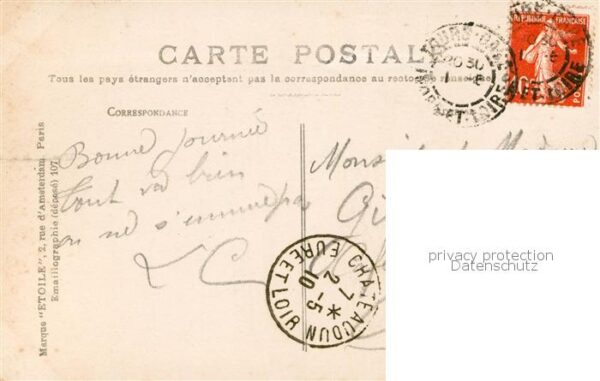 CARTE POSTALE
Tous les pays étrangers n'acceptent pas la correspondance au recto
CORRESPONDANCE
Bonne journée
Tout va bien
on ne s'ennuie pas
LC
Monsieur
Marque "ETOILE", 2, rue d'Amsterdam, Paris
Emaillographie (déposé) 107
TOURS
ET-LOIRE
FRANÇAISE
POSTES
CHATEAUDUN
7-5
2 *
10
EURE ET LOIR
privacy protection
Datenschutz